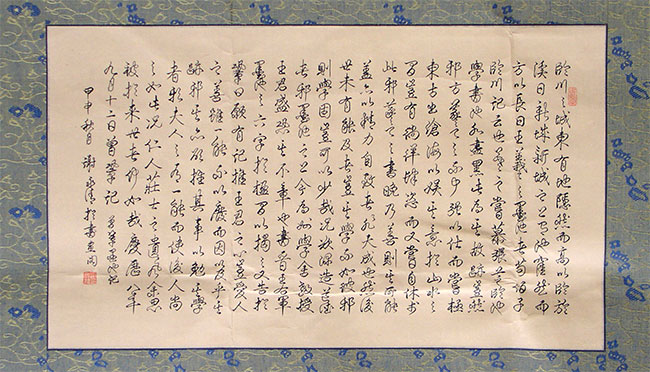 臨川之城東有地隱然而高以臨於
溪曰新城新城之上有池窪然而
方以長曰王羲之之墨池者荀伯子
臨川記云也羲之嘗慕張芝臨池
學書池水盡黑此為其故跡豈信然
邪方羲之之不可強以仕而嘗極
東方出滄海以娛其意於山水之
間豈有徜徉肆恣而又嘗自休於
此邪羲之之書晚乃善則其所能
蓋亦以精力自致者非天成也然後
世未有能及者豈其學不如彼邪
則學固豈可以少哉況欲深造道德
者邪墨池之上今為州學舍教授
王君盛恐其不章也書晉王右軍
墨池之六字於楹間以揭之又告於
鞏曰願有記推王君之心豈愛人
之善雖一能不以廢而因以及乎其
跡邪其亦欲推其事以勉其學
者邪夫人之有一能而使後人尚
之如此況仁人莊士之遺風餘思
被於來世者何如哉慶曆八年
九月十二日曾鞏記 曾鞏墨池記
甲申秋月 謝 於書